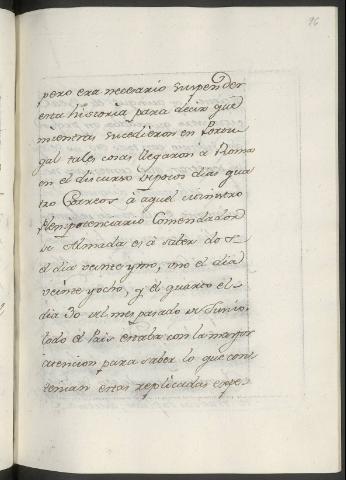 96
pero era necesario suspender
esta historia para decir que
mientras sucedieron en Portu
gal tales cosas llegaron à Roma
en el discurso de pocos dias qua
tro Correos à aquel Ministro
Plenipotenciario Comendador
de Almada es à saber dos
el dia veinte y uno, uno el dia
veinte y ocho, y el quarto el
dia 30 del mes pasado de Junio,
todo el Pais estaba con la mayor
atencion para saber lo que con
tenian estas replicadas expe